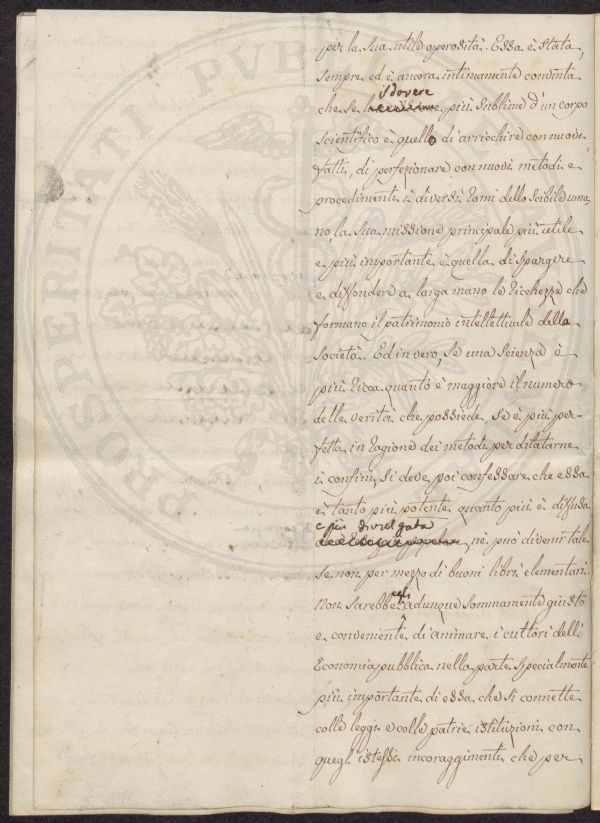 PROSPERITATI PVBLICAE
per la sua utile operosità. Essa è stata,
sempre ed è ancora intimamente convinta
il dovere
che se più sublime d'un corpo
scientifico è quello di arricchire con nuovi
fatti, di perfezionare con nuovi metodi e
procedimenti i diversi rami dello scibile uma-
no, la sua missione principale più utile
e più importante è quella di spargere
e diffondere a larga mano le ricchezze che
formano il patrimonio intellettuale della
Società. Ed in vero, se una scienza è
più ricca quanto è maggiore il numero
delle verità che possiede, se è più per-
fetta in ragione dei metodi per dilatarne
i confini, si deve poi confessare che essa
è tanto più potente quanto più è diffusa
e più divulgata
, nè può divenir tale
se non per mezzo di buoni libri elementari.
Non sarebbe egli adunque sommamente giusto
e conveniente di animare i cultori dell'
Economia pubblica nella parte specialmente
più importante di essa che si connette
colle leggi e colle patrie istituzioni con
quegli istessi incoraggimenti che per